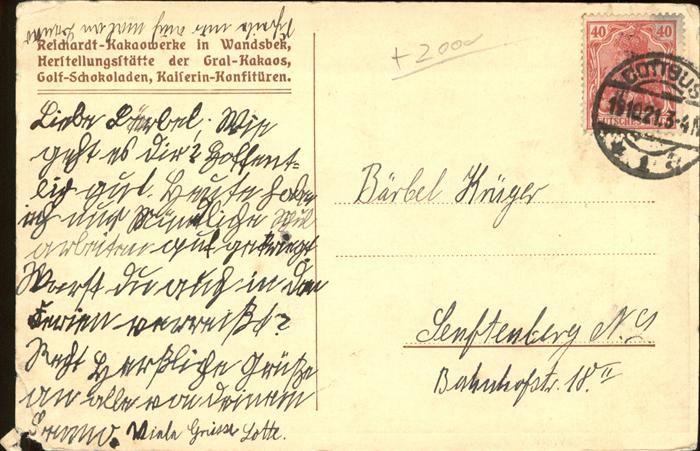 Schreib mir auch mal an Benno
Reichardt-Kakaowerke in Wandsbek,
Herstellungsstätte der Gral-Kakaos,
Golf-Schokoladen, Kaiserin-Konfitüren.
+ 2000
40 40
COTTBUS
19.10.21. 3-4 N
Liebe Bärbel, Wie
geht es dir? Hoffent-
lich gut. Heute habe
ich nur Mündliche
arbeiten gut gekriegt
Warst du auch in den
Ferien verreißt?
Recht Herßliche Grüße
an alle von deinem
Benno. Viele Grüsse Lotte.
Bärbel Krüger
Senftenberg N. L
Bahnhofstr. 18 II